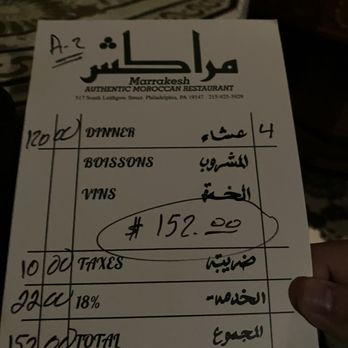 A-2
مراكش
Marrakesh
AUTHENTIC MOROCCAN RESTAURANT
517 South Leithgow Street Philadelphia, PA 19147 215-925-5929
120 00 DINNER عشاء 4
BOISSONS المشروب
VINS
# 152.00
10 00 TAXES ضريبة
22 00 18% الخدمة
152 00 TOTAL المجموع